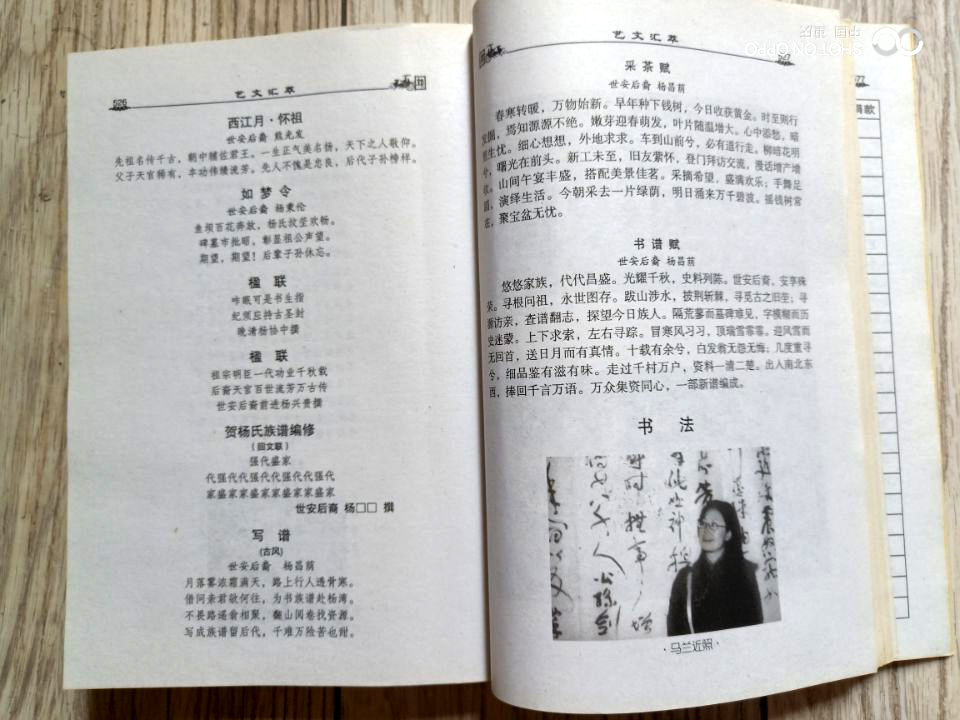 526 艺文汇萃
西江月·怀祖
世安后裔 熊光发
先祖名传千古，朝中辅佐君王。一生正气美名扬，天下之人敬仰。
父子天官稀有，丰功伟绩流芳。先人不愧是忠良，后代子孙榜样。
如梦令
世安后裔 杨秉伦
鱼坝百花奔放，杨氏坟茔欢畅。
碑墓市批昭，彰显祖公声望。
期望，期望！后辈子孙休忘。
楹联
咋眠可是书生指
妃须应持古圣封
晚清杨协中撰
楹联
祖宗明臣一代功业千秋载
后裔天官百世流芳万古传
世安后裔前进杨兴贵撰
贺杨氏族谱编修
(回文联)
强代盛家
代强代代强代代强代代强代
家盛家家盛家家盛家家盛家
世安后裔 杨□□ 撰
写谱
(古风)
世安后裔 杨昌荫
月落雾浓霜满天，路上行人透骨寒。
借问亲君欲何往，为书族谱赴杨湾。
不畏路遥俞相聚，翻山阅卷找资源。
写成族谱留后代，千难万险苦也甜。
艺文汇萃 527
采茶赋
世安后裔 杨昌荫
春寒转暖，万物始新。早年种下钱树，今日收获黄金。时至则行
焉知源源不绝。嫩芽迎春萌发，叶片随温增大。心中添愁，暗
生忧。细心想想，外地求求。车到山前兮，必有道行走。柳暗花明
兮，曙光在前头。新工未至，旧友萦怀，登门拜访交流，漫话增产增
收。山间午宴丰盛，搭配美景佳茗。采摘希望，盛满欢乐；手舞足
蹈，演绎生活。今朝采去一片绿荫，明日涌来万千碧波。摇钱树常
在，聚宝盆无忧。
书谱赋
世安后裔 杨昌荫
悠悠家族，代代昌盛。光耀千秋，史料列陈。世安后裔，安享殊
荣。寻根问祖，永世图存。跋山涉水，披荆斩棘，寻觅古之旧茔；寻
源访亲，查谱翻志，探望今日族人。隔荒蓼而墓碑难见，字模糊而历
史迷蒙。上下求索，左右寻踪。冒寒风习习，顶瑞雪霏霏。迎风雪而
无回首，送日月而有真情。十载有余兮，白发翁无怨无悔；几度重寻
兮，细品鉴有滋有味。走过千村万户，资料一清二楚。出入南北东
西，捧回千言万语。万众集资同心，一部新谱编成。
书法
·马兰近照·
SHOT ON OPPO
捐款